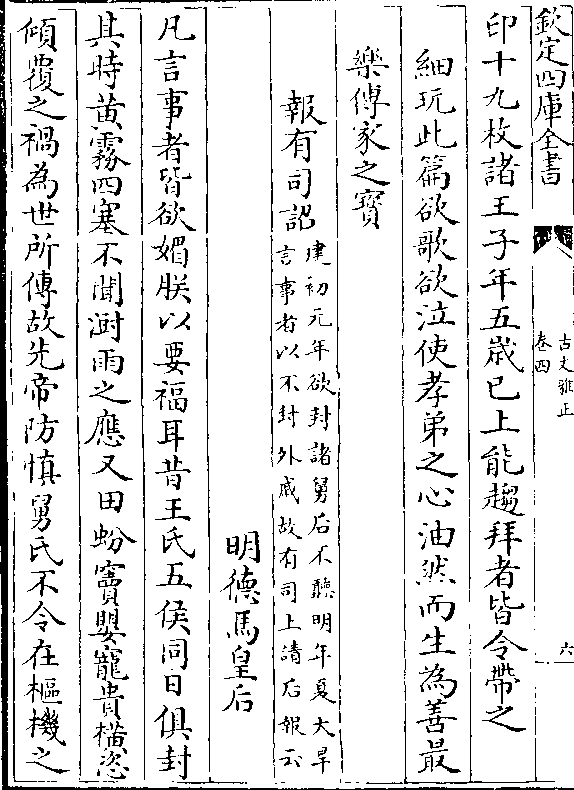 欽定四庫全書
古文雅正
卷四
六
印十九枚諸王子年五歲已上能趨拜者皆令帶之
細玩此篇欲歌欲泣使孝弟之心油然而生為善最
樂傳家之寶
報有司記
建初元年欲封諸舅后不聽明年夏大旱
言事者以不封外戚故有司上請后報云
明德馬皇后
凡言事者皆欲媚朕以要福耳昔王氏五侯同日俱封
其時黃霧四塞不聞澍雨之應又田蚡竇嬰寵貴橫恣
傾覆之禍為世所傳故先帝防慎舅氏不令在樞機之